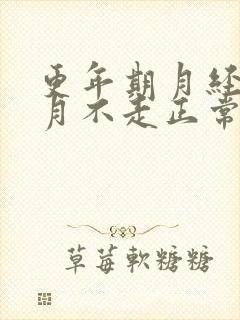 更年期月经
月不走正常
草莓軟糖糖